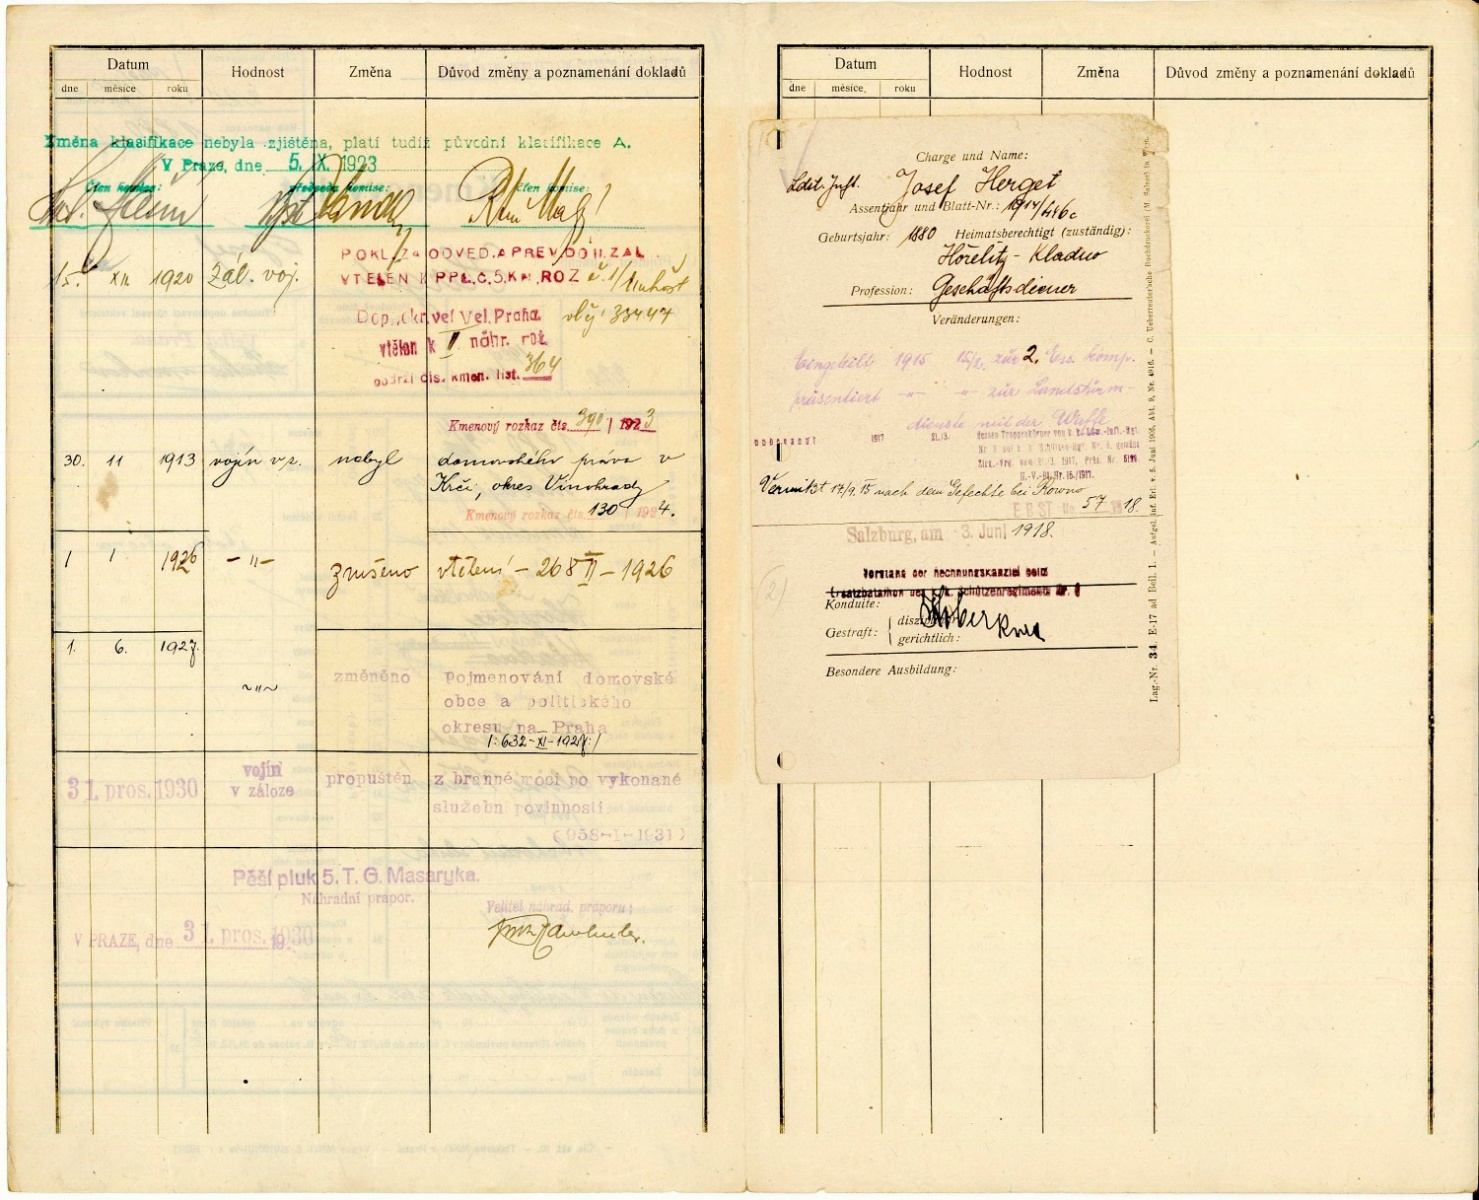 Datum
Hodnost
Změna
Důvod změny a poznamenání dokladů
dne
měsíce
roku
Změna klasifikace nebyla zjištěna, platí tudíž původní klasifikace A.
V Praze, dne 5. IX. 1923
Člen komise:
předseda komise:
člen komise:
15. XII 1920 Zál. voj.
POKL. ZA ODVED. A PREV. DO II. ZAL.
VTELEN K PPL. Č. 5. KM. ROZ č. 1/
Dopl. okr. vel Vel. Praha. 33444
vtělen k II náhr. rot.
obdržl čís. kmen. list. 364
Kmenový rozkaz čís. 390 / 1923
30. 11 1913 vojín v z. nabyl domovského práva v
Krči, okres Vinohrady
Kmenový rozkaz čís. 130 / 1924.
1 1. 1926 – " – zrušeno vtělení – 268 II – 1926
1. 6. 1927. ~"~
změněno pojmenování domovské
obce a politického
okresu na Praha
/: 632 - XI - 1927 :/
31. pros. 1930
vojín
v záloze
propuštěn z branné moci po vykonané
služební povinnosti.
(958-I-1931)
Pěší pluk 5. T. G. Masaryka.
Náhradní prapor.
Velitel náhrad. praporu:
V PRAZE, dne 31. pros. 1930
Datum
Hodnost
Změna
Důvod změny a poznamenání dokladů
dne
měsíce,
roku
Charge und Name:
Ldst. Inft. Josef Herget
Assentjahr und Blatt-Nr.: 1914/446c
Geburtsjahr: 1880 Heimatsberechtigt (zuständig):
Hořelitz - Kladno
Profession: Geschäftsdiener
Veränderungen:
Eingeteilt 1915 15/2. zur 2. Ers. Komp.
präsentiert – " – – " – zur Landsturm-
dienste mit der Waffe
1917 21./3.
Vermißt 17/9. 15 nach dem Gefechte bei Kowno
E B ST No. 57 1918.
Salzburg, am -3. Juni 1918.
Vorstand der Rechnungskanzlei beim
Ersatzbataillon des k.k. Schützenregiments Nr. 8
(2)
Konduite:
Gestraft:
disziplinär:
gerichtlich:
Besondere Ausbildung:
Lag.-Nr. 34. E-17 ad Beil. 1.